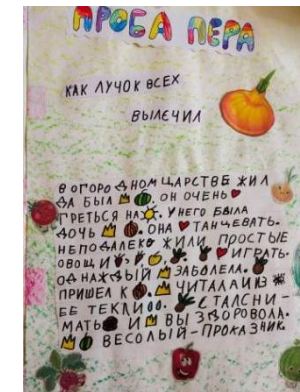 ПРОБА ПЕРА
КАК ЛУЧОК ВСЕХ
ВЫЛЕЧИЛ
В ОГОРОДНОМ ЦАРСТВЕ ЖИЛ
ДА БЫЛ ОН ОЧЕНЬ
ГРЕТЬСЯ НА У НЕГО БЫЛА
ДОЧЬ ОНА ТАНЦЕВАТЬ.
НЕПОДАЛЕКО ЖИЛИ ПРОСТЫЕ
ОВОЩИ ИГРАТЬ.
ОДНАЖДЫЙ ЗАБОЛЕЛА.
ПРИШЕЛ К ЧИТАЛА ИЗ
ЕЕ ТЕКЛИ СТАЛ СНИ-
МАТЬ И ВЫЗДОРОВОЛА.
ВЕСОЛЫЙ-ПРОКАЗНИК.